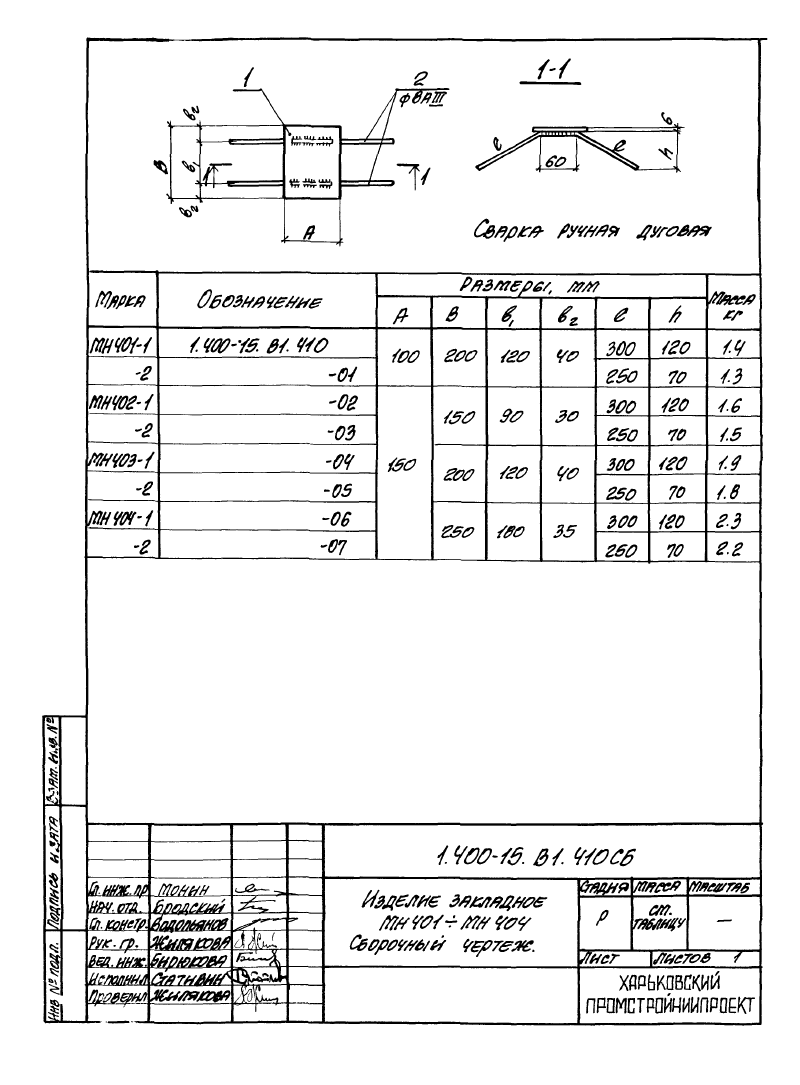 1
2
ф8АIII
1-1
в2
в1
в2
В
1
1
А
ℓ
ℓ
60
6
h
Сварка ручная дуговая
Марка Обозначение Размеры, мм Масса кг
А В в1 в2 ℓ h
МН401-1 1.400-15.В1.410 100 200 120 40 300 120 1.4
-2 -01 250 70 1.3
МН402-1 -02 150 150 90 30 300 120 1.6
-2 -03 250 70 1.5
МН403-1 -04 200 120 40 300 120 1.9
-2 -05 250 70 1.8
МН404-1 -06 250 180 35 300 120 2.3
-2 -07 250 70 2.2
Взам. инв. №
Подпись и дата
Инв № подл.
1.400-15.В1.410СБ
Гл. инж. пр Монин
Нач. отд. Бродский
Гл. констр. Водопьянов
Рук. гр. Жилякова
Вед. инж. Бирюкова
Исполнил Стативин
Проверил Жилякова
Изделие закладное
МН401÷МН404
Сборочный чертеж.
Стадия Масса Масштаб
Р см. таблицу —
Лист Листов 1
Харьковский
Промстройниипроект